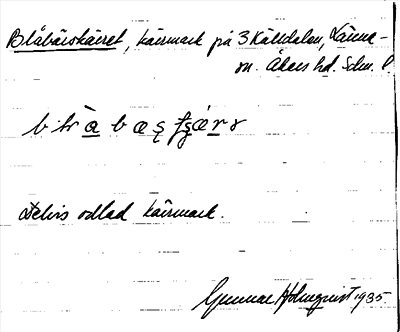 Blåbärskärret, kärrmark på 3 Källdalen, Länna-
sn. Åkers hd. Sdm. l.
Delvis odlad kärrmark.
Gunnar Holmquist 1935